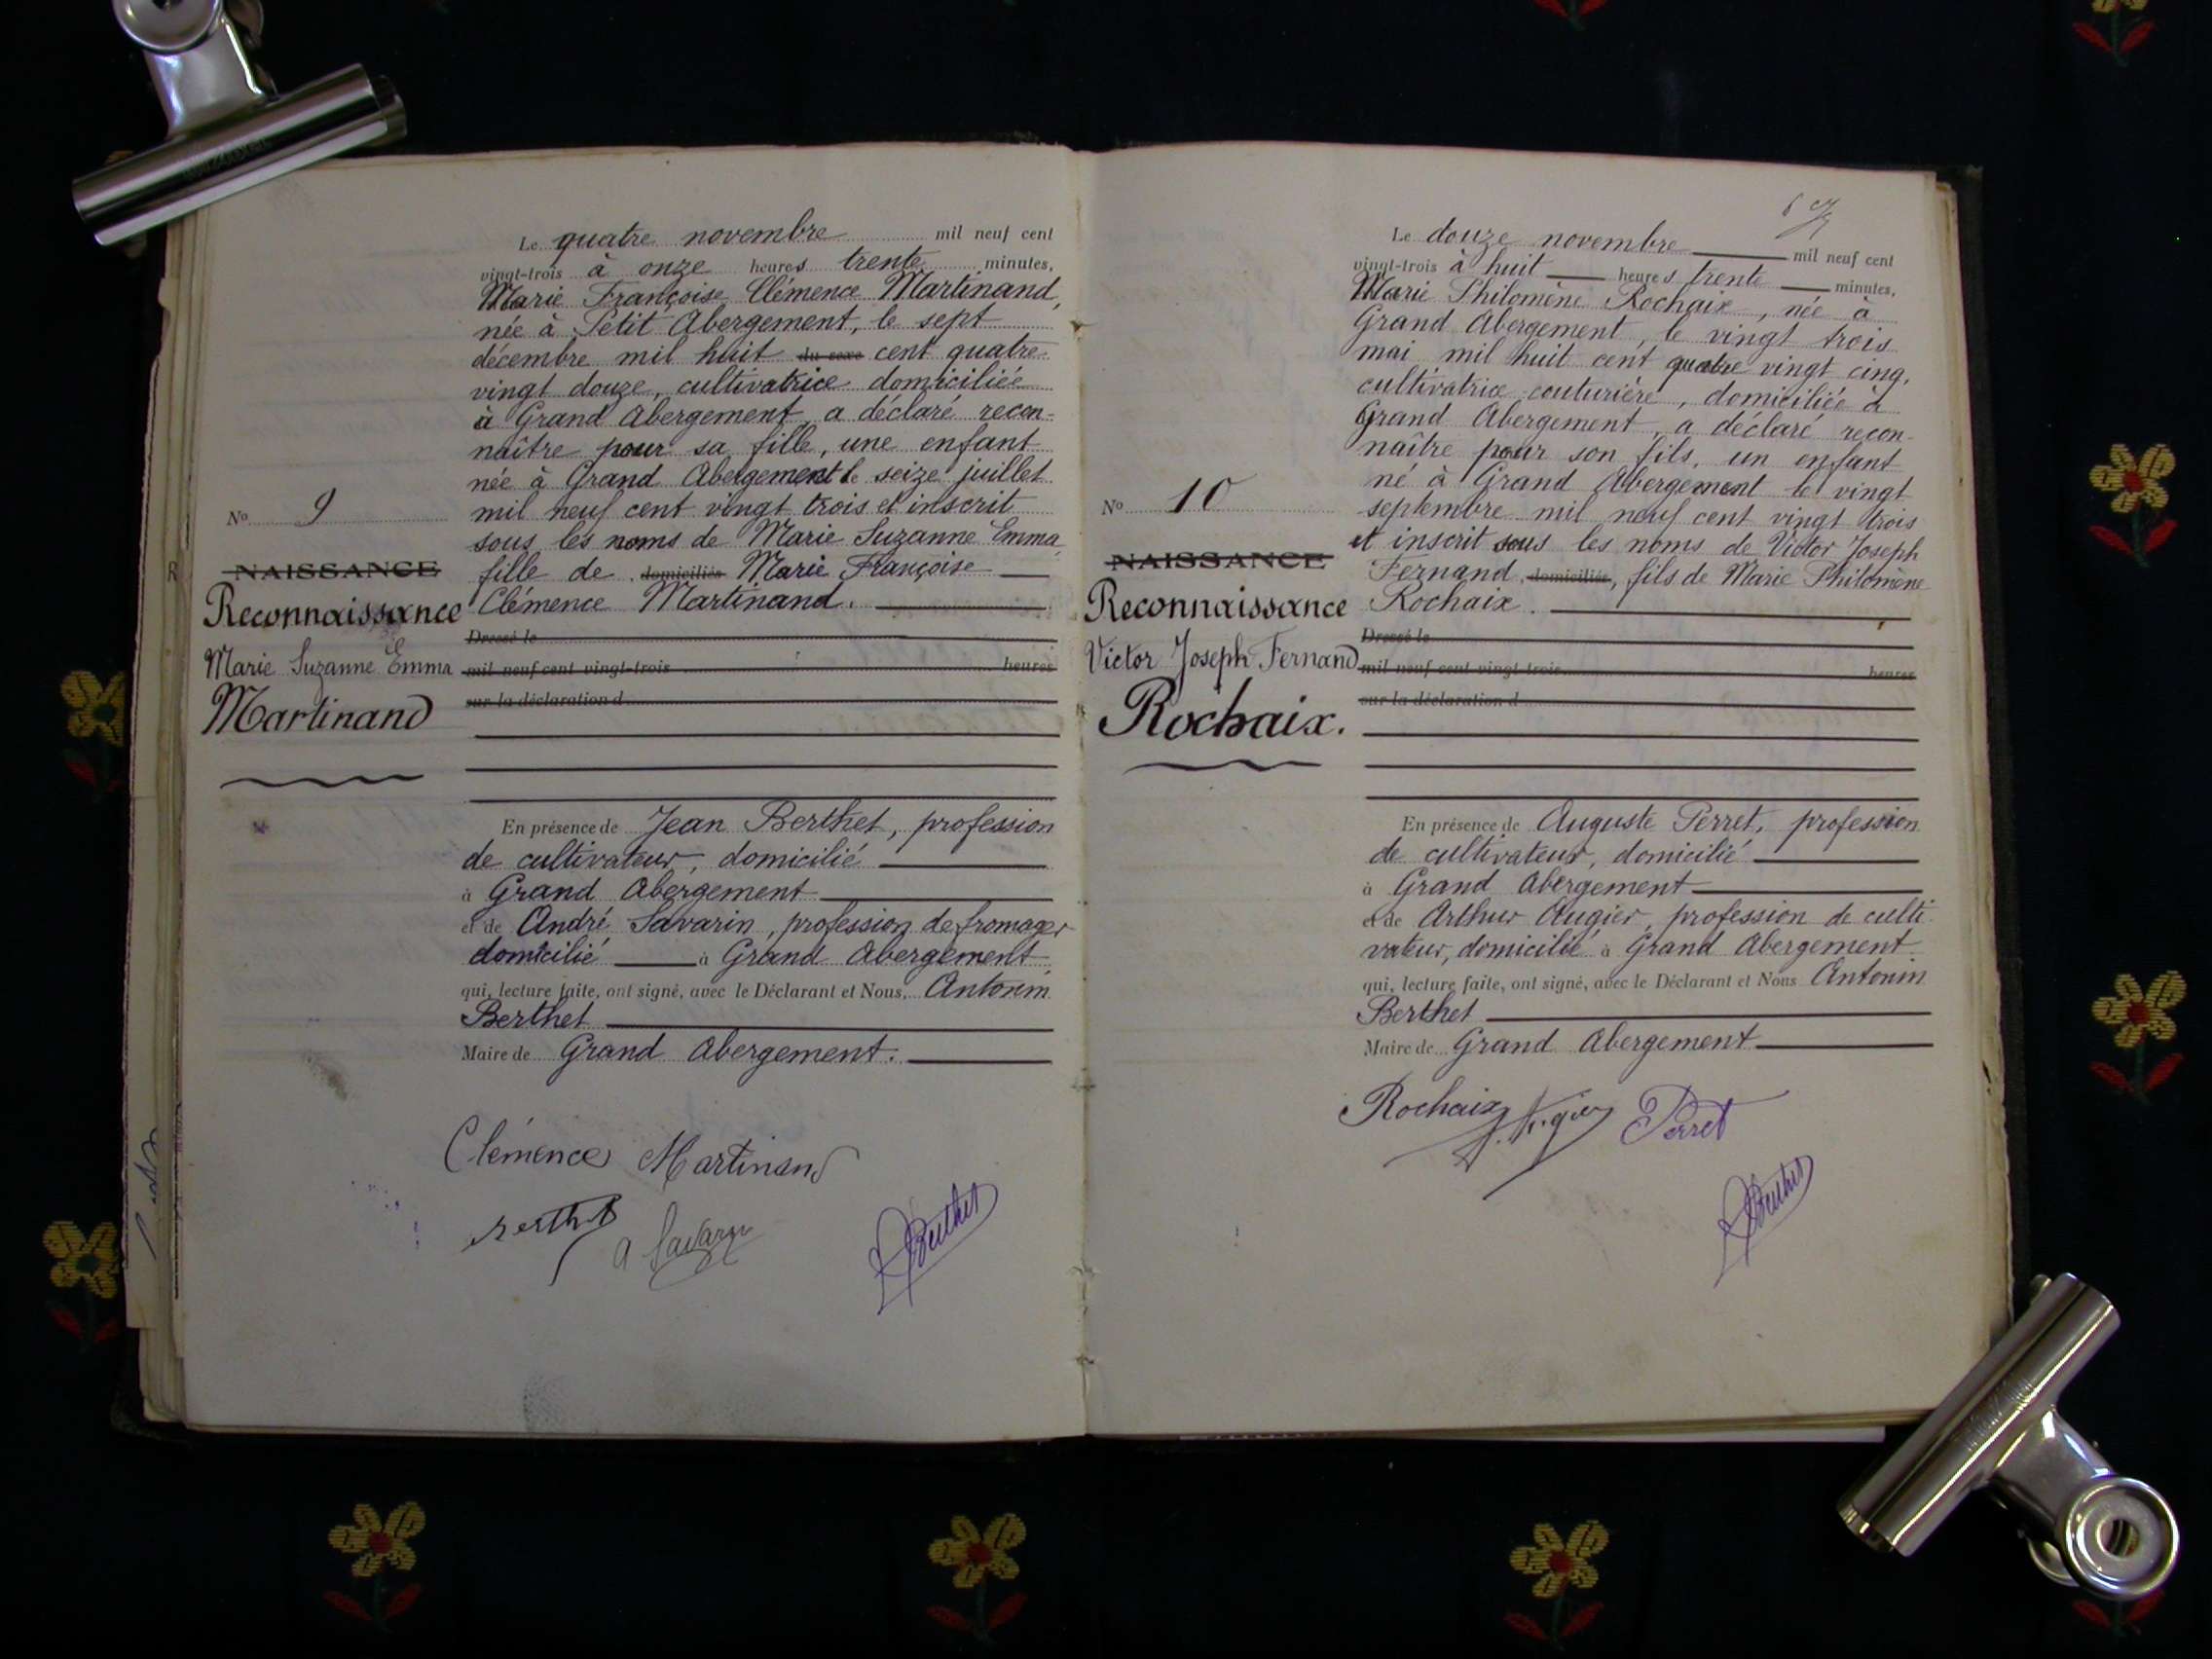 Le quatre novembre mil neuf cent
vingt-trois à onze heures trente minutes,
Marie Françoise Clémence Martinand,
née à Petit Abergement, le sept
décembre mil huit du sexe cent quatre
vingt douze, cultivatrice domiciliée
à Grand Abergement, a déclaré recon-
naître pour sa fille, une enfant
née à Grand Abergement le seize juillet
mil neuf cent vingt trois et inscrit
sous les noms de Marie Suzanne Emma
fille de domiciliés Marie Françoise
Clémence Martinand.
Dressé le
mil neuf cent vingt-trois heures
sur la déclaration d
No 9
NAISSANCE
Reconnaissance
Marie Suzanne Emma
Martinand
En présence de Jean Berthet, profession
de cultivateur, domicilié
à Grand Abergement
et de André Savarin, profession de fromager
domicilié à Grand Abergement
qui, lecture faite, ont signé, avec le Déclarant et Nous, Antonin
Berthet
Maire de Grand Abergement.
Clémence Martinand
Berthet
a Savarin
Berthet
Le douze novembre mil neuf cent
vingt-trois à huit heures trente minutes,
Marie Philomène Rochaix, née à
Grand Abergement, le vingt trois
mai mil huit cent quatre vingt cinq,
cultivatrice couturière, domiciliée à
Grand Abergement, a déclaré recon-
naître pour son fils, un enfant
né à Grand Abergement le vingt
septembre mil neuf cent vingt trois
et inscrit sous les noms de Victor Joseph
Fernand, domiciliés, fils de Marie Philomène
Rochaix.
Dressé le
mil neuf cent vingt-trois heures
sur la déclaration d
No 10
NAISSANCE
Reconnaissance
Victor Joseph Fernand
Rochaix.
En présence de Auguste Perret, profession
de cultivateur, domicilié
à Grand Abergement
et de Arthur Augier, profession de culti
vateur, domicilié à Grand Abergement
qui, lecture faite, ont signé, avec le Déclarant et Nous Antonin
Berthet
Maire de Grand Abergement
Rochaix
Perret
Berthet